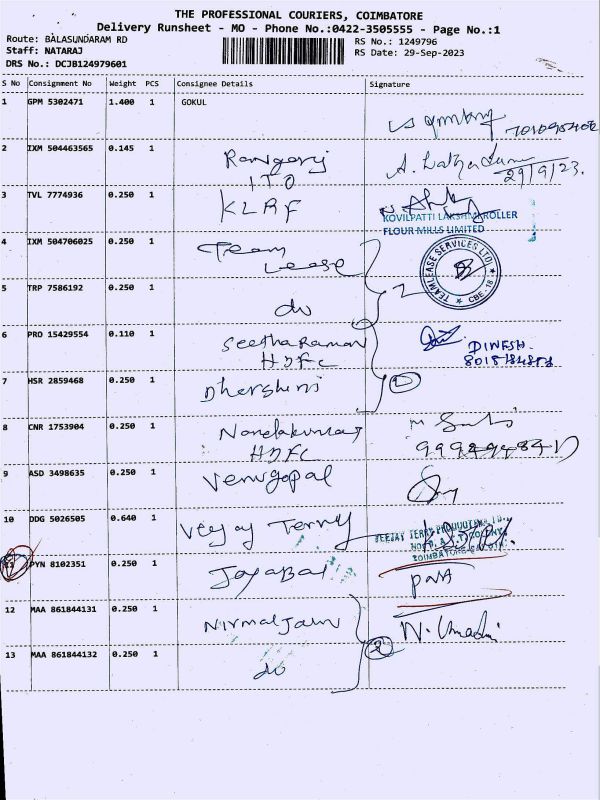 THE PROFESSIONAL COURIERS, COIMBATORE
Delivery Runsheet - MO - Phone No.:0422-3505555 - Page No.:1
Route: BALASUNDARAM RD
RS No.: 1249796
Staff: NATARAJ
RS Date: 29-Sep-2023
DRS No.: DCJB124979601
S No Consignment No Weight PCS Consignee Details Signature
1 GPM 5302471 1.400 1 GOKUL
2 IXM 504463565 0.145 1 Rangaraj
ITO
29/9/23.
3 TVL 7774936 0.250 1 KLRF
KOVILPATTI LAKSHMI ROLLER
FLOUR MILLS LIMITED
4 IXM 504706025 0.250 1 Team
Lease
TEAMLEASE SERVICES LTD. CBE-18
5 TRP 7586192 0.250 1 do 2
6 PRO 15429554 0.110 1 Seetharaman
HDFC
DINESH
7 HSR 2859468 0.250 1 Dharshini
8 CNR 1753904 0.250 1 Nandakumar
HDFC
9 ASD 3498635 0.250 1 Venugopal
10 DDG 5026505 0.640 1 Veejay Terry
11 PYN 8102351 0.250 1 Jayabal
12 MAA 861844131 0.250 1 Nirmal Jain N. Umadevi
13 MAA 861844132 0.250 1 do 2